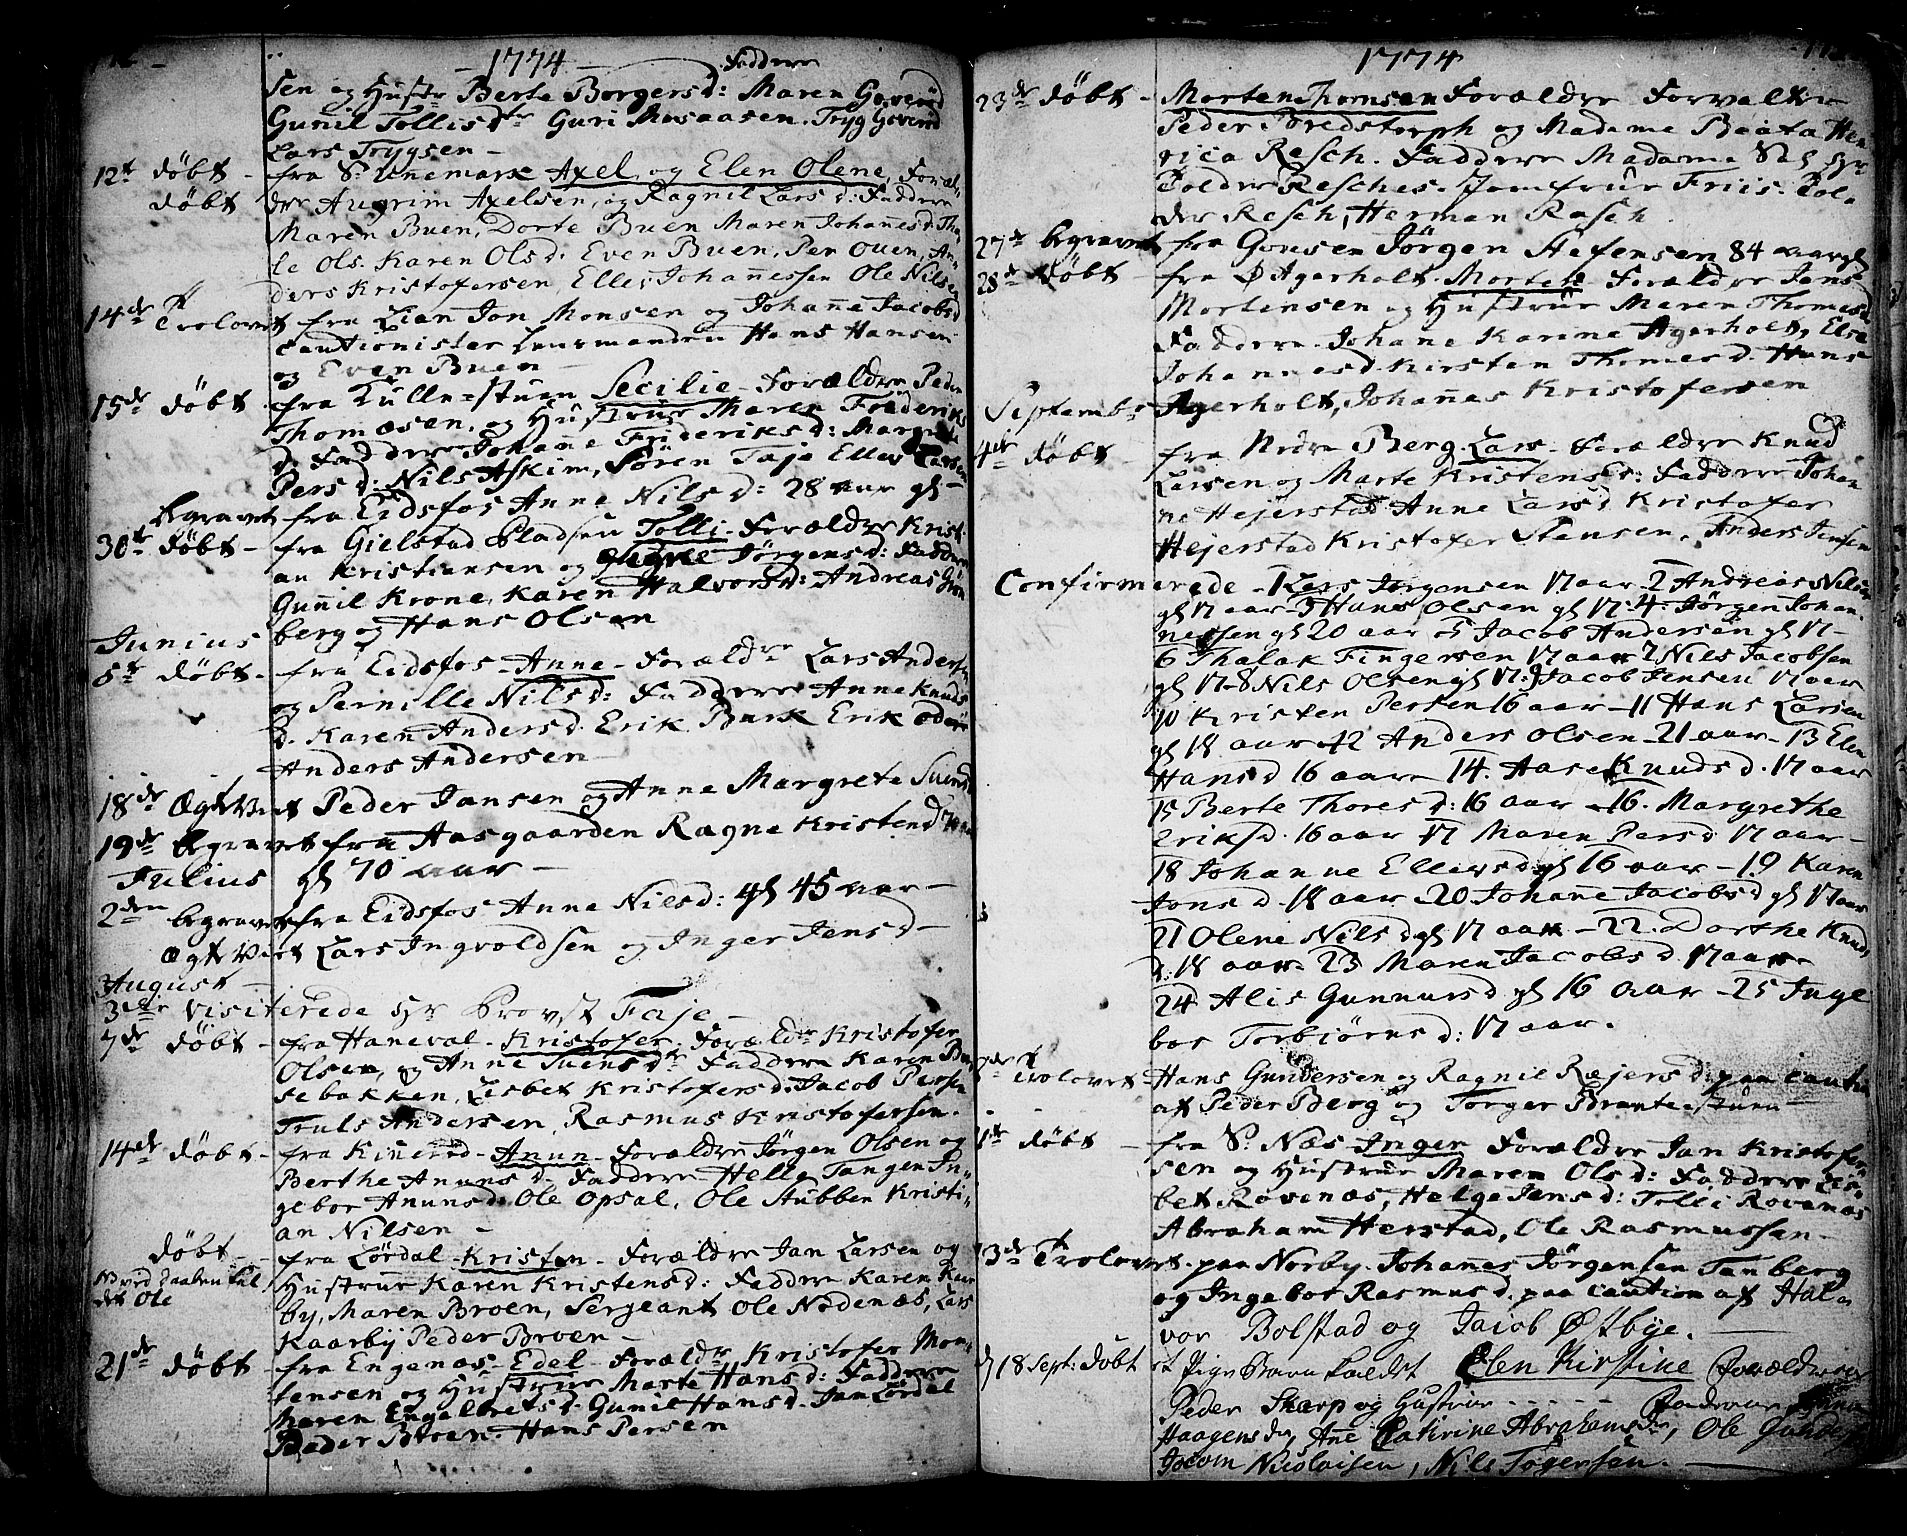 1774
Faddere
sen og Hustr Berte Borgersd: Maren Goverød
Gunil Tollisdtr Guri Musaasen. Tryg Goverød
Lars Trygsen
12t døbt - fra S. Enemark Axel og Elen Olene, Foræl-
døbt dre Augrim Axelsen, og Ragnil Lars d: Faddere
Maren Buen, Dorte Buen Maren Johanesd Tha-
le Ols. Karen Olsd. Even Buen, Per Buen, An-
ders Kristofersen, Elles Johannessen Ole Nilsen
14de Trolovet fra Lian Jon Monsen og Johane Jacobsd
Cautionister Lensmanden Hans Hansen
og Even Buen
15de døbt fra Kulle=stuen Secilie - Forældre Peder
Thomæsen, og Hustrue Maren Frederiks
d. Faddere Johanne Frideriksd: Margrete
Persd: Nils Askim, Sören Taje Elles Larsen
Begravet fra Eidsfos Anne Nilsd: 28 aar gl
30te døbt - fra Gielstad Pladsen Tolli - Forældre Kristi
an Kristiansen og Signe Jørgensd: Faddere
Gunnil Krone, Karen Halvorsd: Andreas Grøn
berg og Hans Olsen
Junius
5te døbt - fra Eidsfos - Anne - Forældre Lars Andersen
og Pernille Nilsd: Faddere Anne Knuds
d. Karen Andersd. Erik Bursk Erik Odens
Anders Andersen
18de Ægtviet Peder Jansen og Anne Margrete Suends
19de Begravet fra Aasgaarden Ragne Kristend
Julius gl 70 aar
2den begravet fra Eidsfos Anne Nilsd: gl 45 aar
Ægtviet Lars Ingvoldsen og Inger Jensd
August
3die Visiterede Hr Provst Faje
7de døbt - fra Haneval - Kristofer. Forældr Kristofer
Olsen, og Anne Suensdtr Faddere Karen Bus
sebakken, Lisbet Kristofersd. Jacob Persen
Truls Andersen, Rasmus Kristofersen.
14de døbt - fra Kinerød - Anun - Forældre Jörgen Olsen og
Berthe Anunsd. Faddere Helle Tangen In-
gebor Anunsd. Ole Opsal, Ole Stubben Kristi-
an Nilsen
døbt - fra Lördal - Kristen - Forældre Jan Larsen og
NB ved daaben kal Hustrue Karen Kristensd: Faddere Karen Kaar
det Ole by, Maren Broen, Sergeant Ole Nødenæs, Lars
Kaarby Peder Broen
21de døbt - fra Engenæs - Edel - Forældr Kristofer Mor-
tensen og Hustrue Marte Hansd: Faddere
Maren Engelbretsd. Gunil Hansd. Jan Lördal
Peder Broen. Hans Persen
1774
23de døbt - Morten Thomsen Forældre Forvalter
Peder Bredstorph og Madame Beata Hen
rica Resch. Faddere Madame S&S Hr
Colder Resches. Jomfrue Friis. Col-
der Resch, Herman Rasch
27de begravet fra Gonsen Jörgen Stefensen 84 aar gl
28de døbt - fra Ø Agerholt. Morten Forældre Jens
Mortensen og Hustrue Maren Thomasd
Faddere. Johane Karine Agerholt, Else
Johannesd Kirsten Thomesd. Hans
Septembr Agerholt, Johanes Kristofersen
4de døbt - fra Nedre Berg. Lars - Forældre Knud
Larsen og Marte Kristensd: Faddere Johan
ne Hejerstad Anne Larsd Kristofer
Hejerstad Kristofer Stensen, Anders Jensen
Confirmerede - 1 Lars Jörgensen 17 aar 2 Andreas Nilsen
gl 17 aar 3 Hans Olsen gl 17. 4. Jörgen Johan
nessen gl 20 aar 5 Jacob Andersen gl 17-
6 Thalak Fingersen 17 aar 7 Nils Jacobsen
gl 17-8 Nils Olsen gl 17: 9 Jacob Jensen 17 aar
10 Kristen Persen 16 aar - 11 Hans Larsen
gl 18 aar 12 Anders Olsen - 21 aar - 13 Elen
Hansd 16 aar - 14. Aase Knudsd. 17 aar
15 Berte Thoresd: 16 aar - 16. Margrethe
Eriksd. 16 aar 17 Maren Persd 17 aar -
18 Johanne Ellevsd gl 16 aar - 19 Karen
Jonsd. 18 aar - 20 Johane Jacobsd gl 17 aar
21 Olene Nilsd gl 17 aar - 22. Dorthe Knuds
d. 18 aar. 23 Maren Jacobsd. 17 aar.
24. Alis Gunnursd gl 16 aar - 25 Inge
bor Torbjörnsd: 17 aar.
Trolovet - Hans Gundersen og Ragnil Rejersd. paa Caution
af Peder Berg og Torger Brante=stuen
døbt - fra S. Næs - Inger Forældre Jan Kristofer
sen og Hustrue Maren Olsd: Faddere Lis-
bet Rövenæs, Helge Jensd: Tolli Rovenæs
Abraham Herstad, Ole Rasmussen.
13de Trolovet - paa Norby. Johanes Jörgensen Tanberg
og Ingebor Rasmusd. paa Caution af Hal-
vor Bolstad og Jacob Østbye.
d 18 Sept: døbt et Pige Barn kaldet Elen Kirstine Forældrene
Peder Skarp og Hustrue - - - - - Fadderne
Haagensdtr, Ane Cathrine Abrahamsdtr, Ole
Jocom Nicolaisen, Nils Togersen.